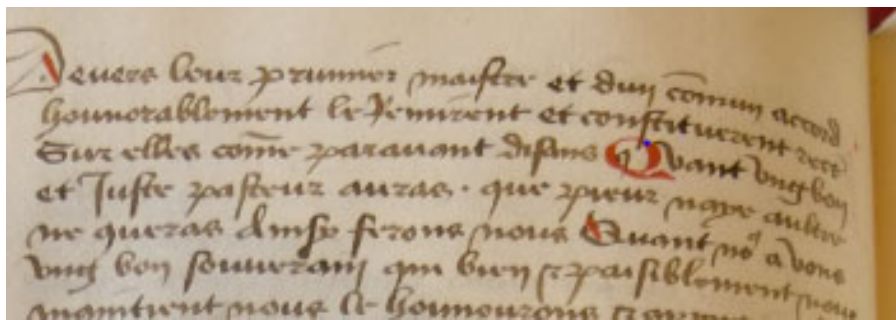 Devers leur prumier maistre et dun comun accord
honnorablement le Remirent et constituerent rece
Sur elles come paravant disans Quant ung bon
et Juste pasteur auras . que pieur naye aultre
ne queras Ainsy ferons nous Quant no9 avons
ung bon souverain qui bien et paisiblement nous
maintient nous le honnourons et